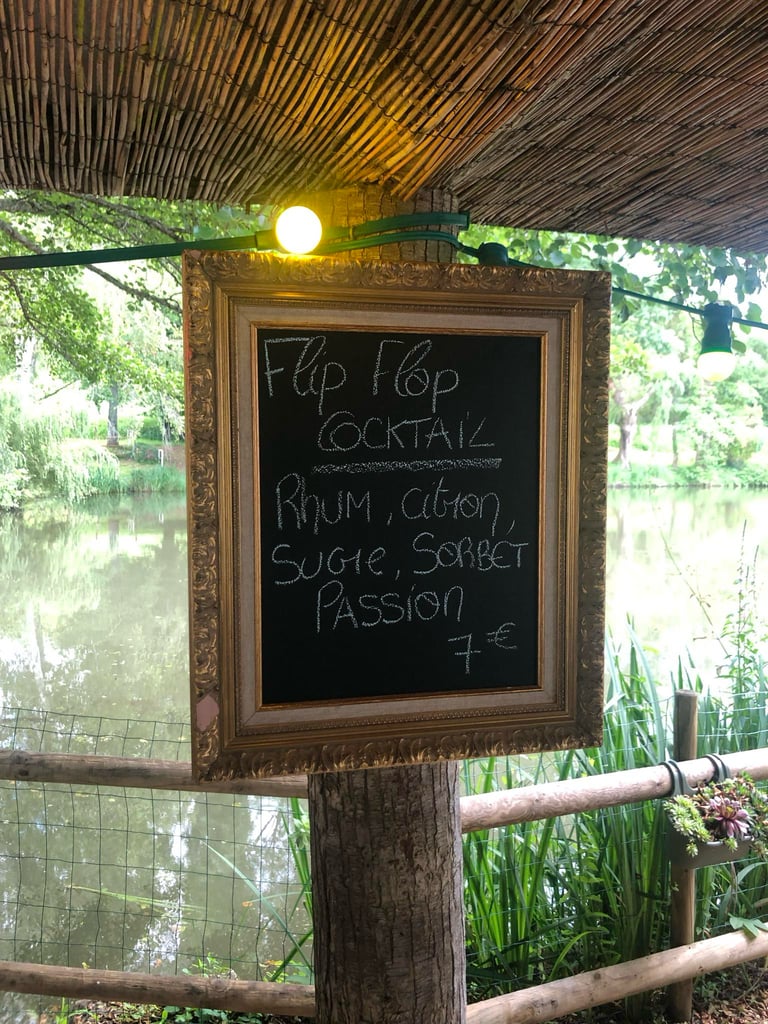 Flip Flop
COCKTAIL
RHUM, citron,
SUCre, SORBET
PASSiON
7 €